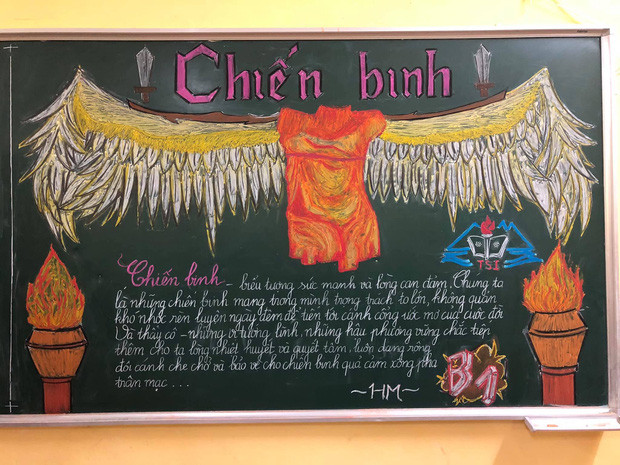 Chiến binh
TSI
Chiến binh - biểu tượng sức mạnh và lòng can đảm. Chúng ta
là những chiến binh mang trong mình trọng trách to lớn, không quản
khó nhọc rèn luyện ngày đêm để tiến tới cánh cổng ước mơ của cuộc đời
Và thầy cô - những vị tướng lĩnh, những hậu phương vững chắc tiếp
thêm cho ta lòng nhiệt huyết và quyết tâm, luôn dang rộng
đôi cánh che chở và bảo vệ cho chiến binh quả cảm xông pha
trận mạc ...
~HM~
B1